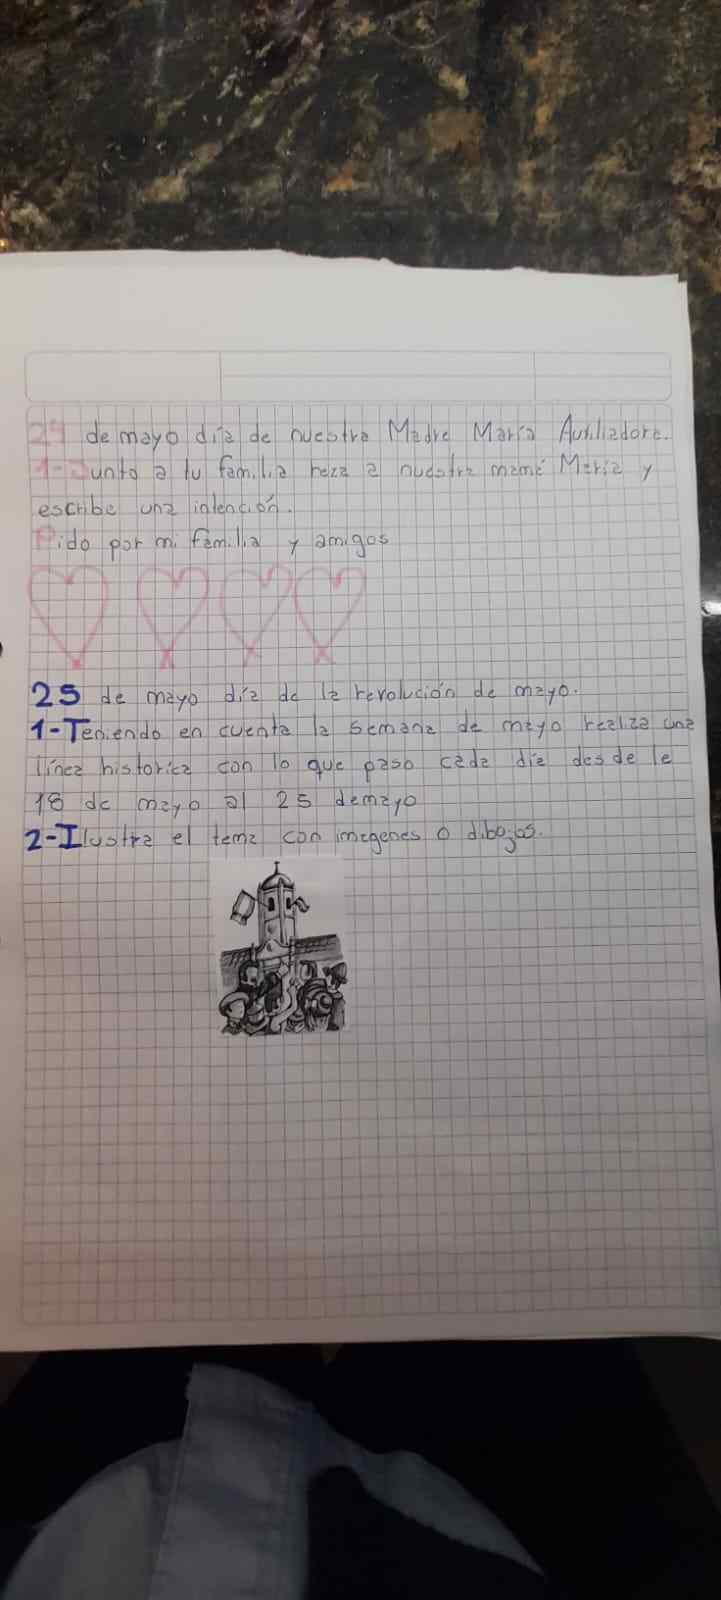 24 de mayo día de nuestra Madre María Auxiliadora.
1-Junto a tu familia reza a nuestra mamá María y
escribe una intención.
Pido por mi familia y amigos
25 de mayo día de la revolución de mayo.
1-Teniendo en cuenta la semana de mayo realiza una
línea historica con lo que paso cada día desde le
18 de mayo al 25 demayo
2-Ilustra el tema con imagenes o dibojos.